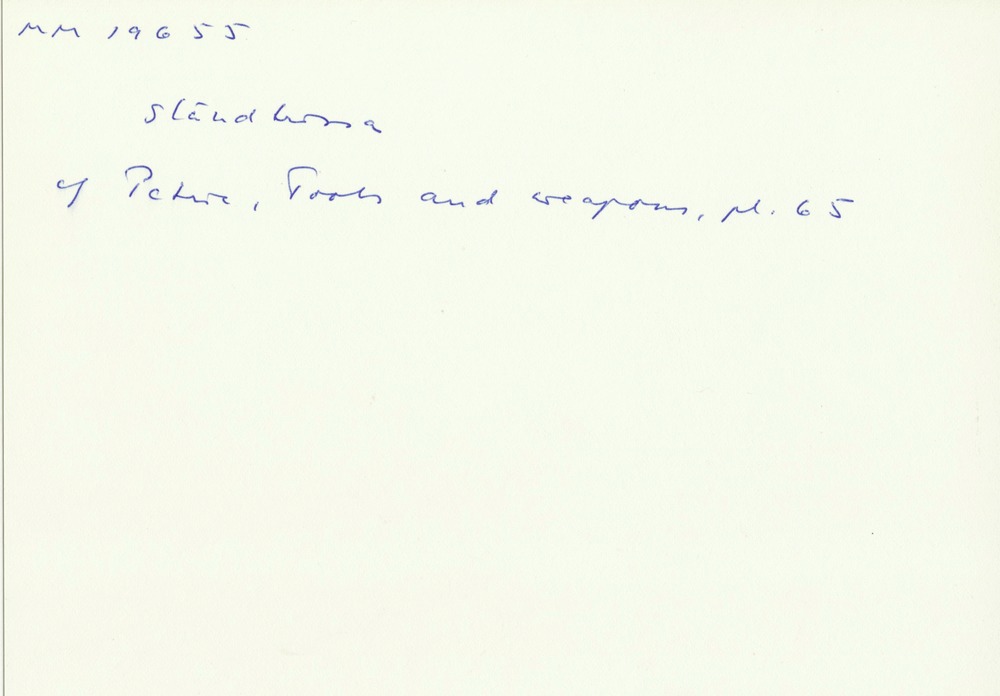 MM 19655
sländtrissa
cf Petrie, Tools and weapons, pl. 65